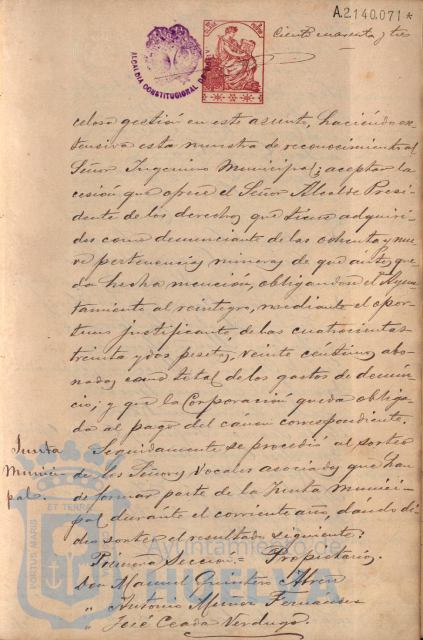 A.2140.071*
Ciento noventa y tres
ALCALDIA CONSTITUCIONAL DE HUELVA
celosa gestión en este asunto, haciéndo ex-
tensiva esta muestra de reconocimiento al
Señor Ingeniero Municipal; aceptar la
cesión que ofrece el Señor Alcalde Presi-
dente de los derechos que tiene adquiri-
dos como denunciante de las ochenta y nue-
ve pertenencias mineras de que ántes que-
da hecha mencion, obligandose el Ayun-
tamiento al reintegro, mediante el opor-
tuno justificante, de las cuatrocientas
treinta y dos pesetas, veinte céntimos abo-
nados como total de los gastos de denún-
cio; y que la Corporación queda obliga-
da al pago del cánon correspondiente.
Junta
Munici-
pal.
Seguidamente se procedió al sorteo
de los Señores Vocales asociados que han
de formar parte de la Junta Munici-
pal durante el corriente año, dándo di-
cho sorteo el resultado siguiente:
Primera Sección = Propietarios.
Don Manuel Quintero Abreu
" Antonio Muñoz Fernández
" José Ceada Verdugo.
PORTUS MARIS
ET TERRAE
Ayuntamiento de
HUELVA